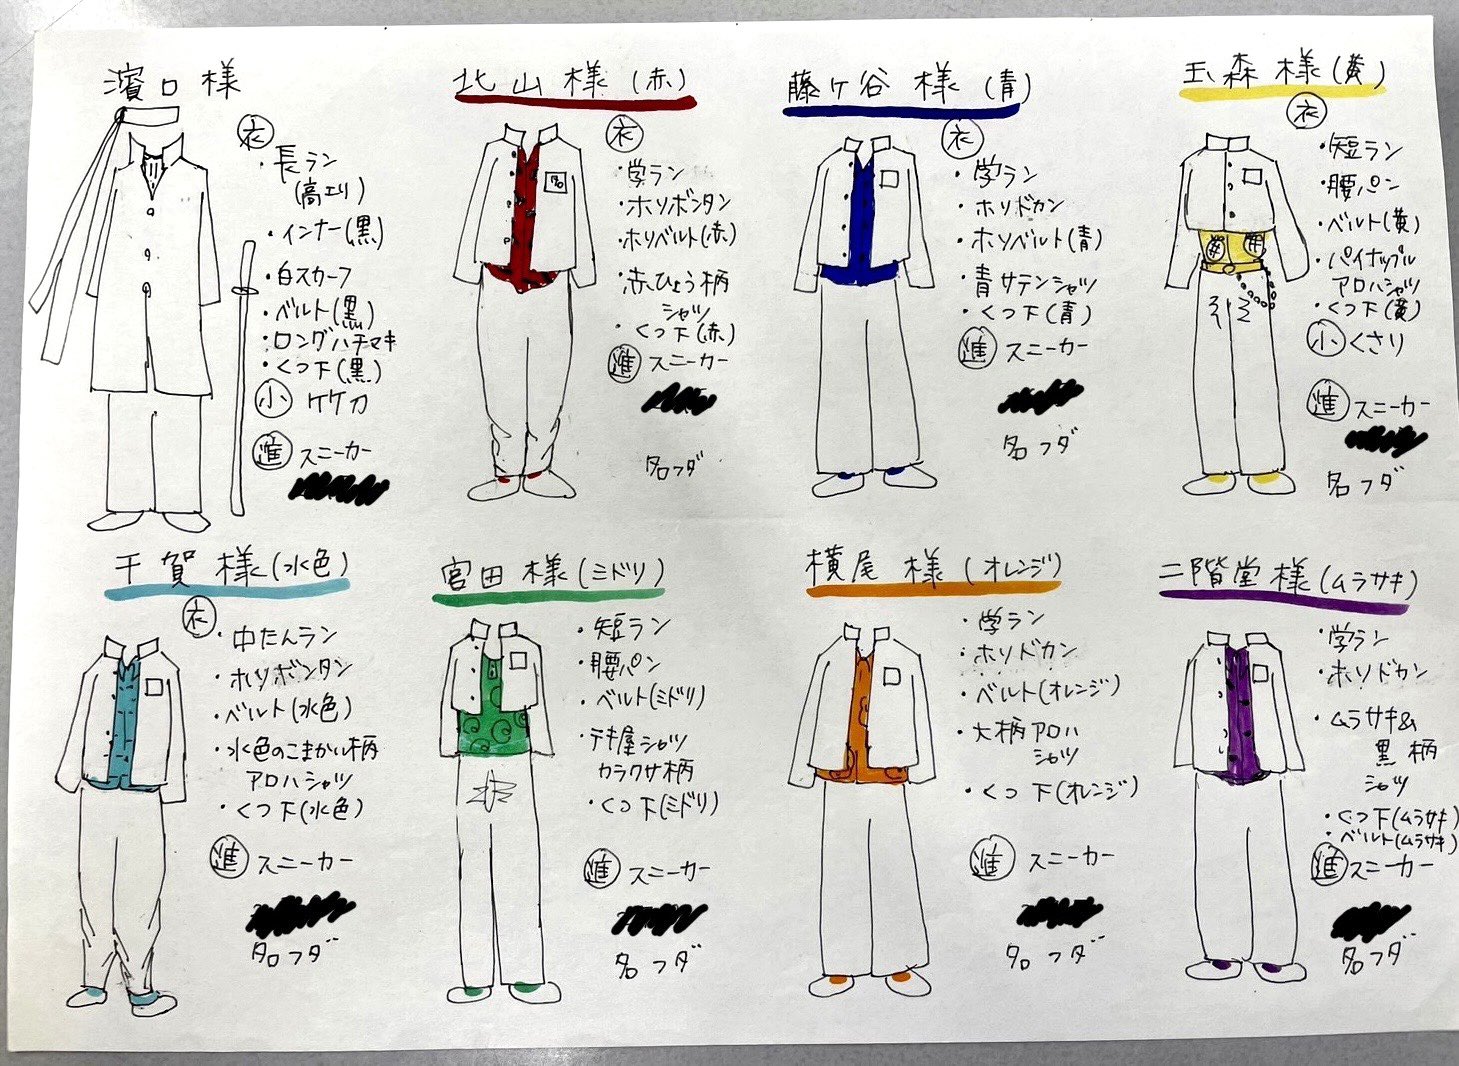 濱口様
衣
・長ラン
(高エリ)
・インナー(黒)
・白スカーフ
・ベルト(黒)
・ロングハチマキ
・くつ下(黒)
小 ケケ刀
進 スニーカー
北山様(赤)
衣
・学ラン
・ホソボンタン
・ホソベルト(赤)
・赤ひょう柄
シャツ
・くつ下(赤)
進 スニーカー
名フダ
藤ヶ谷様(青)
衣
・学ラン
・ホソドカン
・ホソベルト(青)
・青サテンシャツ
・くつ下(青)
進 スニーカー
名フダ
玉森様(黄)
衣
・短ラン
・腰パン
・ベルト(黄)
・パイナップル
アロハシャツ
・くつ下(黄)
小 くさり
進 スニーカー
名フダ
千賀様(水色)
衣
・中たんラン
・ホソボンタン
・ベルト(水色)
・水色のこまかい柄
アロハシャツ
・くつ下(水色)
進 スニーカー
名フダ
宮田様(ミドリ)
・短ラン
・腰パン
・ベルト(ミドリ)
・テキ屋シャツ
カラクサ柄
・くつ下(ミドリ)
進 スニーカー
名フダ
横尾様(オレンジ)
・学ラン
・ホソドカン
・ベルト(オレンジ)
・大柄アロハ
シャツ
・くつ下(オレンジ)
進 スニーカー
名フダ
二階堂様(ムラサキ)
・学ラン
・ホソドカン
・ムラサキ&
黒柄
シャツ
・くつ下(ムラサキ)
・ベルト(ムラサキ)
進 スニーカー
名フダ